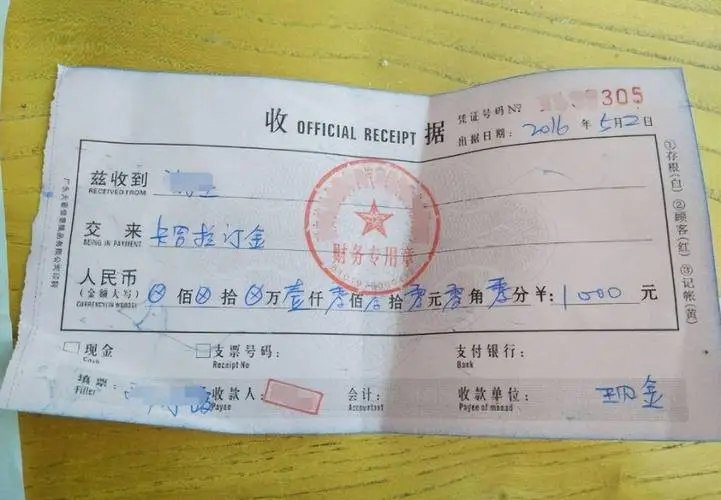 收 OFFICIAL RECEIPT 据
凭证号码 № 305
出据日期: 2016 年 5月2日
兹收到
RECEIVED FROM
交来 卡罗拉订金
BEING IN PAYMENT
人民币
(金额大写) 佰 拾 万 壹仟 零佰 拾 零元 零角 零分 ¥: 1000 元
财务专用章
①存根(白) ②顾客(红) ③记帐(黄)
现金 支票号码: 支付银行:
Cash Receipt No Bank
填票: 收款人: 会计: 收款单位: 现金
Filler Payee Accountant